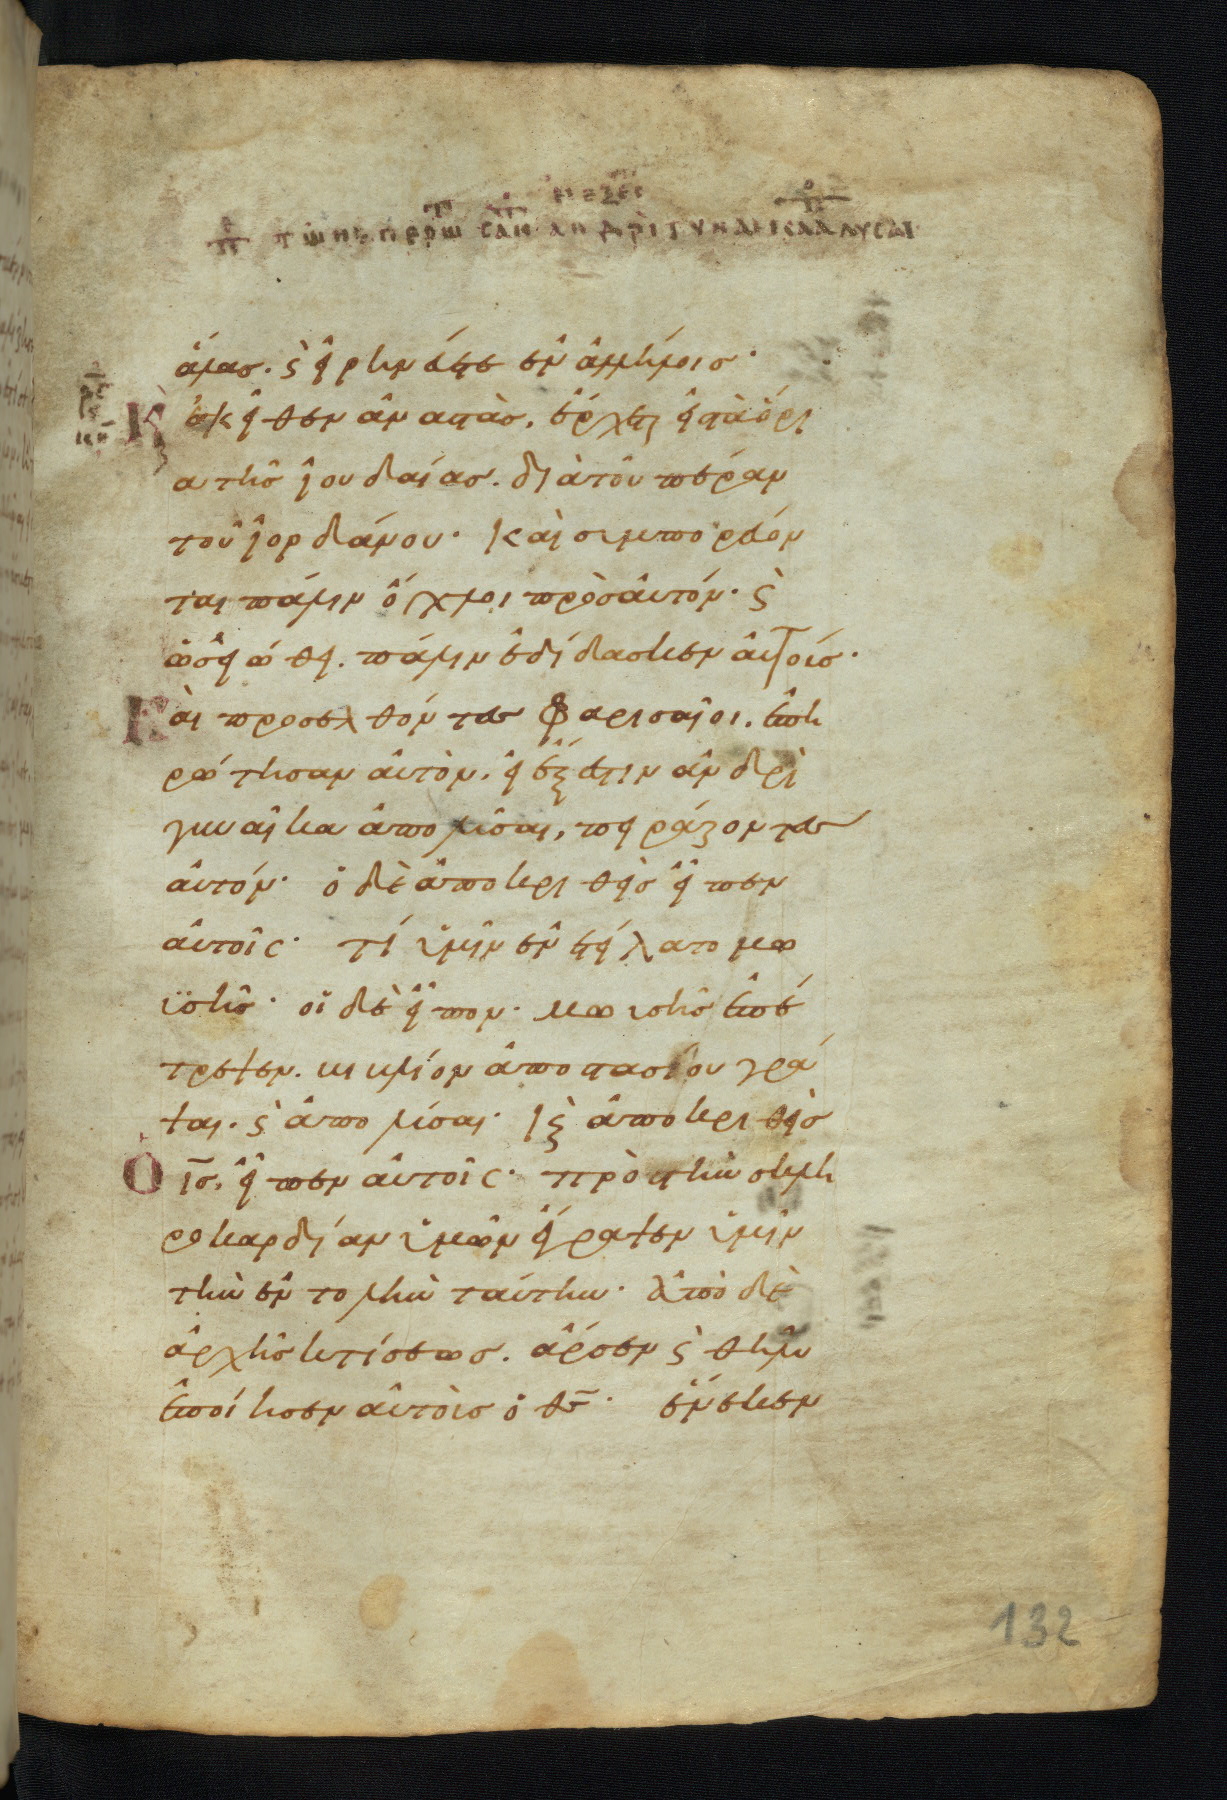 ἅλας. ϗ εἰρηνεύετε ἐν ἀλλήλοις·
Κἀκεῖθεν ἀναστὰς. ἔρχεται εἰς τὰ ὅρι
α τῆς ἰουδαίας. διὰ τοῦ πέραν
τοῦ ἰορδάνου· Καὶ συμπορεύον
ται πάλιν ὄχλοι πρὸς αὐτόν· ϗ
ὡς εἰώθει. πάλιν ἐδίδασκεν αὐτοῖς·
Καὶ προσελθόντες Φαρισαῖοι. ἐπη
ρώτησαν αὐτὸν. εἰ ἔξεστιν ἀνδρὶ
γυναῖκα ἀπολῦσαι, πειράζοντες
αὐτόν· ὁ δὲ ἀποκριθεὶς εἶπεν
αὐτοῖς· τί ὑμῖν ἐνετείλατο μω
ϋσῆς· οἱ δὲ εἶπον· μωυσῆς ἐπέ
τρεψεν. βιβλίον ἀποστασίου γρά
ψαι. ϗ ἀπολύσαι· κϗ ἀποκριθεὶς
Ὁ ι̅ς̅. εἶπεν αὐτοῖς· πρὸς τὴν σκλη
ροκαρδίαν ὑμῶν ἔγραψεν ὑμῖν
τὴν ἐντολὴν ταύτην· Ἀπὸ δὲ
ἀρχῆς κτίσεως. ἄρσεν ϗ θῆλυ
ἐποίησεν αὐτοὺς ὁ θ̅ς̅· ἕνεκεν
132